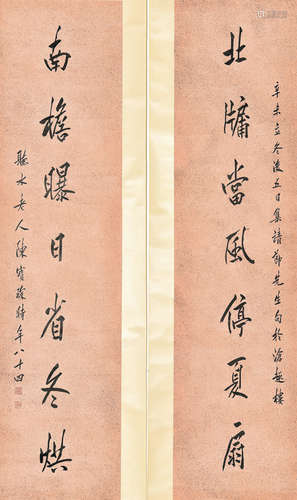 北牖當風停夏扇
辛未立冬後五日集靖節先生句於滄趣樓
南檐曝日省冬烘
聽水老人陳寶琛時年八十四